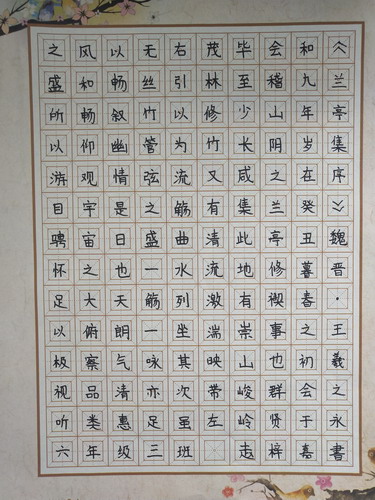 《兰亭集序》魏晋·王羲之永
和九年岁在癸丑暮春之初会于
会稽山阴之兰亭修禊事也群贤
毕至少长咸集此地有崇山峻岭
茂林修竹又有清流激湍映带左
右引以为流觞曲水列坐其次虽
无丝竹管弦之盛一觞一咏亦足
以畅叙幽情是日也天朗气清惠
风和畅仰观宇宙之大俯察品类
之盛所以游目骋怀足以极视听
六年级三班 走梓嘉書